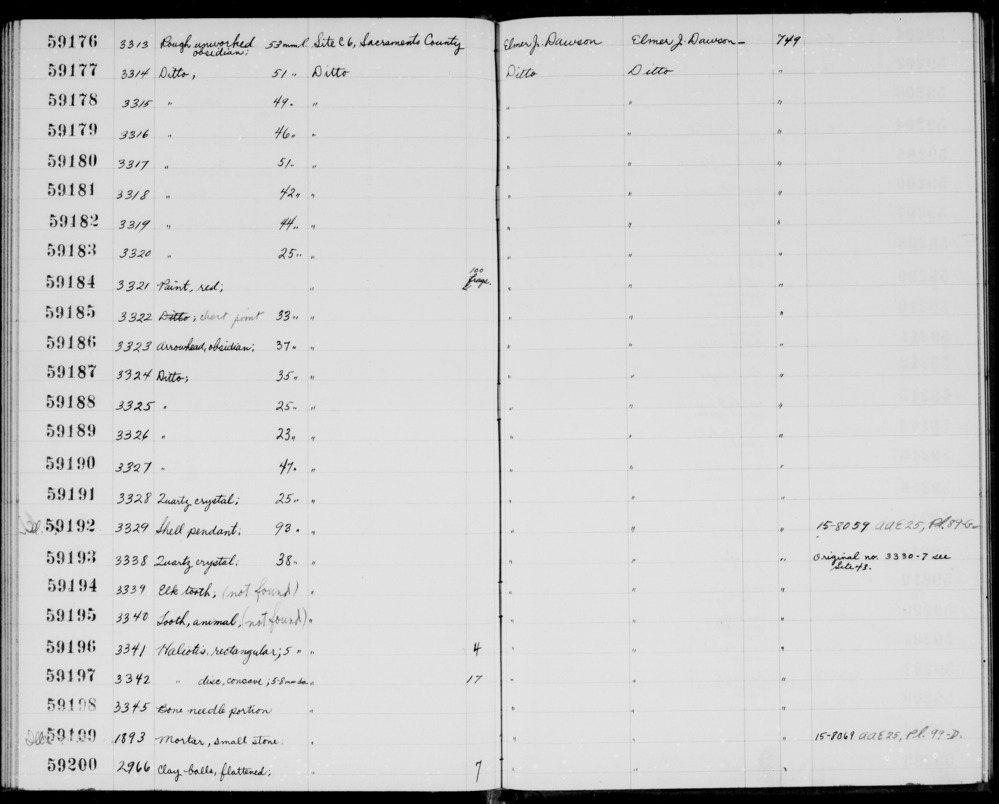 59176 3313 Rough unworked obsidian; 53 mm l Site C 6, Sacramento County Elmer J. Dawson Elmer J. Dawson 749
59177 3314 Ditto, 51 " Ditto Ditto Ditto "
59178 3315 " 49 " " " " "
59179 3316 " 46 " " " " "
59180 3317 " 51 " " " " "
59181 3318 " 42 " " " " "
59182 3319 " 44 " " " " "
59183 3320 " 25 " " " " "
59184 3321 Paint, red; " 100 frags. " " "
59185 3322 Ditto; chert point 33 " " " " "
59186 3323 Arrowhead, obsidian; 37 " " " " "
59187 3324 Ditto; 35 " " " " "
59188 3325 " 25 " " " " "
59189 3326 " 23 " " " " "
59190 3327 " 47 " " " " "
59191 3328 Quartz crystal; 25 " " " " "
59192 3329 Shell pendant; 93 " " " " " 15-8059 AAE 25, Pl. 89-G
59193 3338 Quartz crystal; 38 " " " " " Original no. 3330-7 see Site 43.
59194 3339 Elk tooth, (not found) " " " "
59195 3340 Tooth, animal, (not found) " " " "
59196 3341 Haliotis, rectangular; 5 " " 4 " " "
59197 3342 " disc, concave; 5-8 mm da. " 17 " " "
59198 3345 Bone needle portion " " " "
59199 1893 Mortar, small stone " " " " 15-8069 AAE 25, Pl. 99-D.
59200 2966 Clay-balls, flattened; " 7 " " "